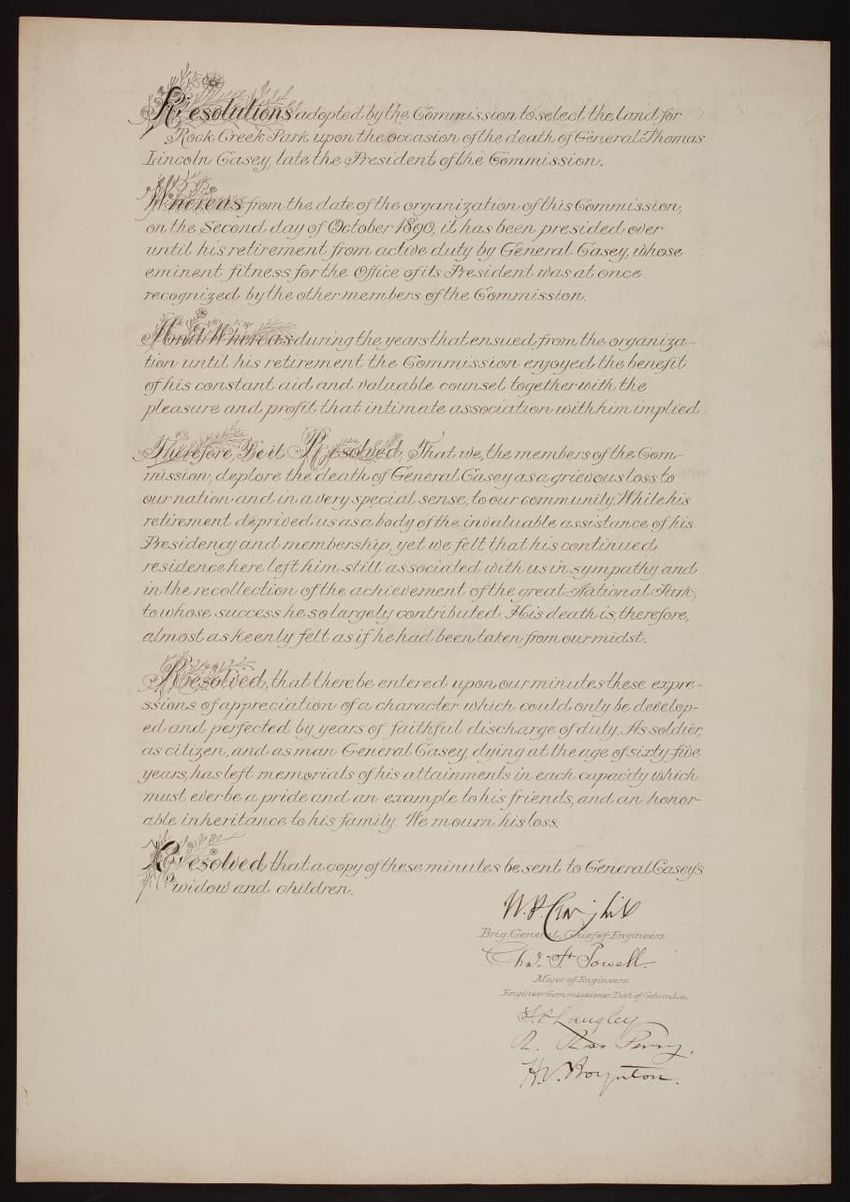 Resolutions adopted by the Commission to select the land for
Rock Creek Park upon the occasion of the death of General Thomas
Lincoln Casey, late the President of the Commission.
Whereas from the date of the organization of this Commission,
on the Second day of October 1890, it has been presided over
until his retirement from active duty by General Casey, whose
eminent fitness for the Office of its President was at once
recognized by the other members of the Commission.
And Whereas during the years that ensued from the organiza-
tion until his retirement the Commission enjoyed the benefit
of his constant aid and valuable counsel together with the
pleasure and profit that intimate association with him implied
Therefore, Be it Resolved, That we, the members of the Com-
mission, deplore the death of General Casey as a grievous loss to
our nation and in a very special sense, to our community. While his
retirement deprived us as a body of the invaluable assistance of his
Presidency and membership, yet we felt that his continued
residence here left him still associated with us in sympathy and
in the recollection of the achievement of the great National Park,
to whose success he so largely contributed. His death is, therefore,
almost as keenly felt as if he had been taken from our midst.
Resolved, that there be entered upon our minutes these expre-
ssions of appreciation of a character which could only be develop-
ed and perfected by years of faithful discharge of duty. As soldier,
as citizen, and as man General Casey, dying at the age of sixty-five
years, has left memorials of his attainments in each capacity which
must ever be a pride and an example to his friends, and an honor-
able inheritance to his family. We mourn his loss.
Resolved, that a copy of these minutes be sent to General Casey's
widow and children.
W. P. Craighill
Brig. General, Chief of Engineers.
Chas. F. Powell.
Major of Engineers.
Engineer Commissioner Dist. of Columbia.
S. P. Langley
R. Ross Perry.
H. V. Boynton.